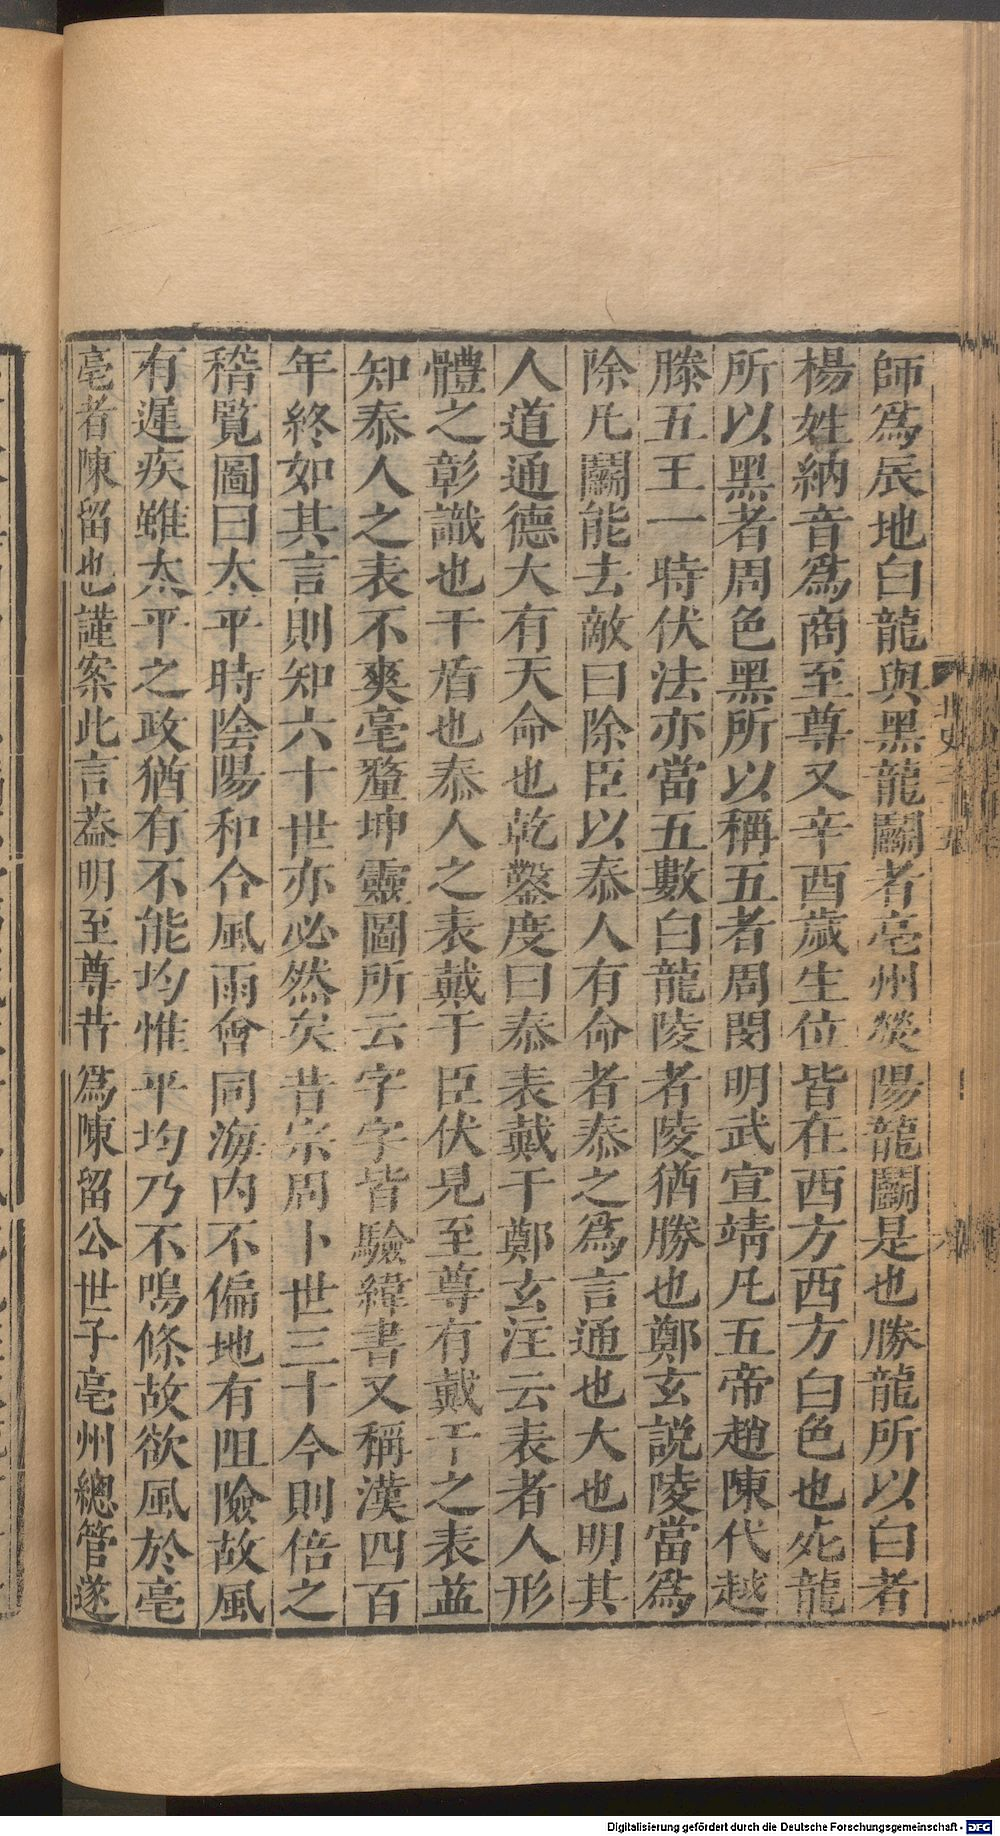 師爲辰地白龍與黑龍鬭者亳州滎陽龍鬭是也勝龍所以白者
楊姓納音爲商至尊又辛酉歲生位皆在西方西方白色也死龍
所以黑者周色黑所以稱五者周閔明武宣靖凡五帝趙陳代越
滕五王一時伏法亦當五數白龍陵者陵猶勝也鄭玄説陵當爲
除凡鬭能去敵曰除臣以泰人有命者泰之爲言通也大也明其
人道通德大有天命也乾鑿度曰泰表戴干鄭玄注云表者人形
體之彰識也干盾也泰人之表戴干臣伏見至尊有戴干之表益
知泰人之表不爽毫釐坤靈圖所云字字皆驗緯書又稱漢四百
年終如其言則知六十世亦必然矣昔宗周卜世三十今則倍之
稽覽圖曰太平時陰陽和合風雨會同海内不偏地有阻險故風
有遲疾雖太平之政猶有不能均惟平均乃不鳴條故欲風於亳
亳者陳留也謹案此言葢明至尊昔爲陳留公世子亳州總管遂
Digitalisierung gefördert durch die Deutsche Forschungsgemeinschaft - DFG